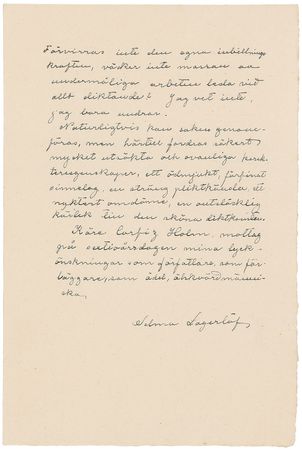 Förvirras inte den egna inbillnings
kraften, väcker inte massan av
undermåliga arbeten leda vid
allt diktande? Jag vet inte
jag bara undrar.
Naturligtvis kan saken genom-
föras, men härtill fordras säkert
mycket utsökta och ovanliga karak-
teregenskaper, ett ödmjukt, förfinat
sinnelag, en sträng pliktkänsla, ett
nyktert omdöme, en outsläcklig
kärlek till den sköna diktkonsten.
Käre Corfiz Holm, mottag
på sextioårsdagen mina lyck-
önskningar som författare, som för-
läggare, som ädel, älskvärd männi-
ska,
Selma Lagerlöf,